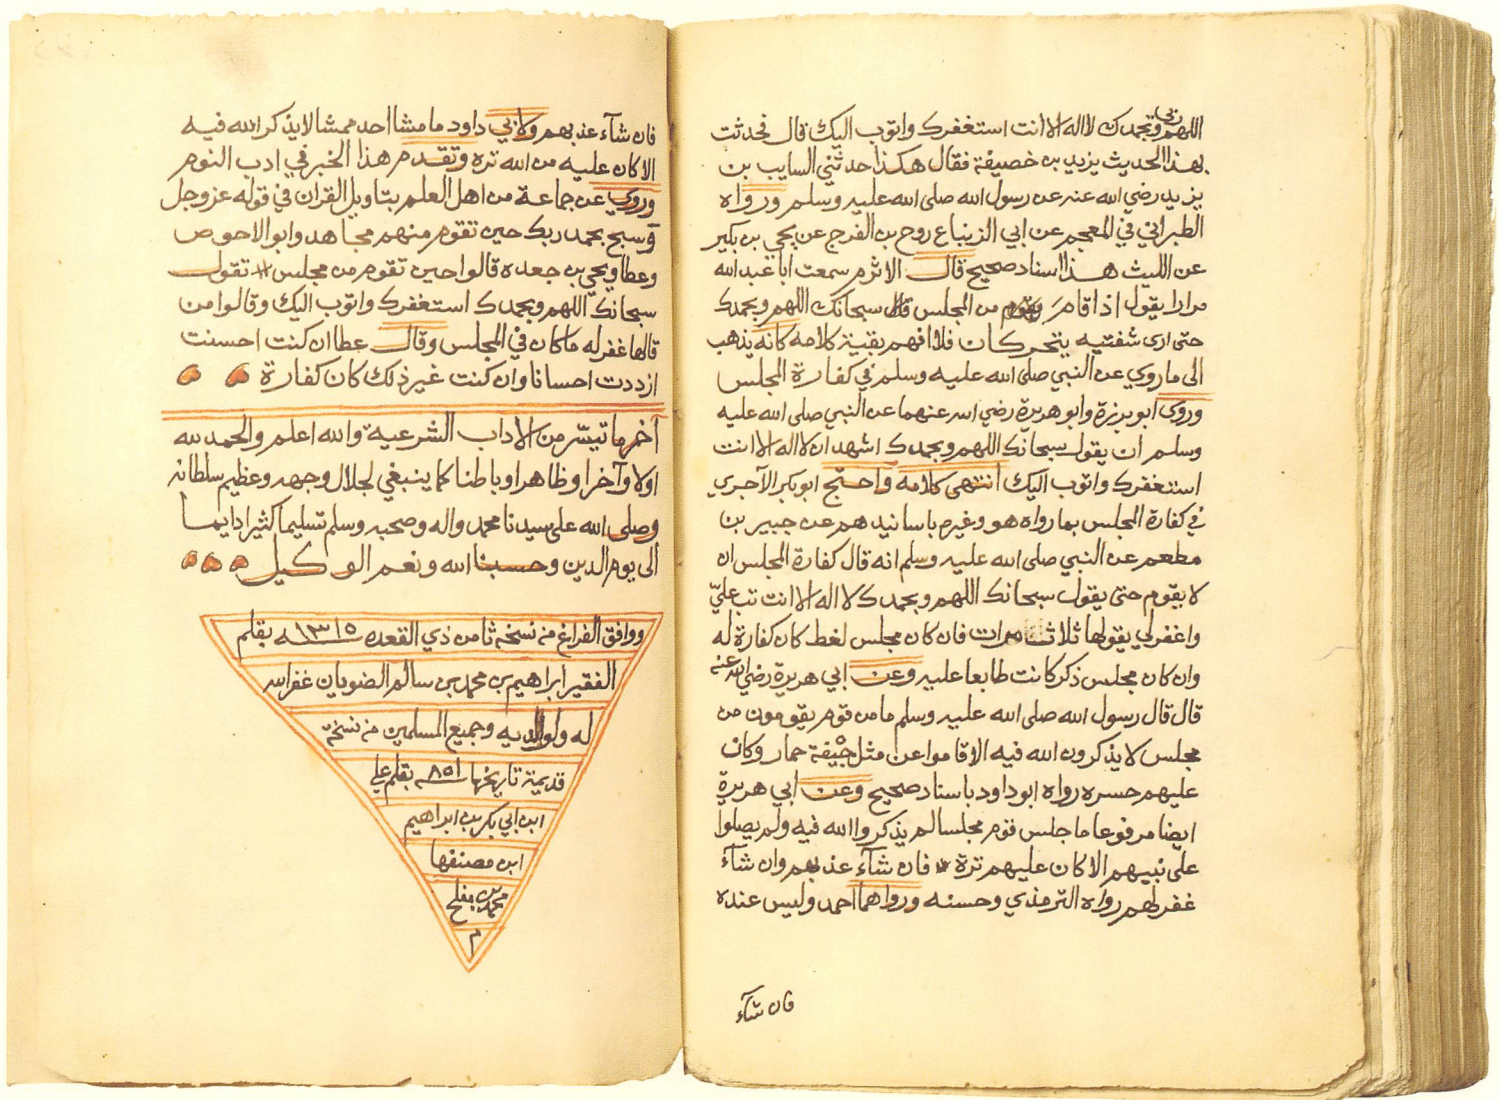 اللهم ربي وبحمدك لا اله الا انت استغفرك واتوب اليك قال فحدثت
بهذا الحديث يزيد بن خصيفة فقال هكذا حدثني السايب بن
يزيد رضي الله عنه عن رسول الله صلى الله عليه وسلم ورواه
الطبراني في المعجم عن ابي الزنباع روح بن الفرج عن يحي بن بكير
عن الليث هذا اسناد صحيح قال الاثرم سمعت ابا عبد الله
مرارا يقول اذا قام من المجلس قال سبحانك اللهم وبحمدك
حتى ارى شفتيه يتحركان فلا افهم بقية كلامه كانه يذهب
الى ما روي عن النبي صلى الله عليه وسلم في كفارة المجلس
وروى ابو برزة وابو هريرة رضي الله عنهما عن النبي صلى الله عليه
وسلم ان يقول سبحانك اللهم وبحمدك اشهد ان لا اله الا انت
استغفرك واتوب اليك انتهى كلامه واحتج ابو بكر الآجري
في كفارة المجلس بما رواه هو وغيره باسانيدهم عن جبير بن
مطعم عن النبي صلى الله عليه وسلم انه قال كفارة المجلس ان
لا يقوم حتى يقول سبحانك اللهم وبحمدك لا اله الا انت تب عليّ
واغفر لي يقولها ثلاث مرات فان كان مجلس لغط كان كفارة له
وان كان مجلس ذكر كانت طابعا عليه وعن ابي هريرة رضي الله عنه
قال قال رسول الله صلى الله عليه وسلم ما من قوم يقومون من
مجلس لا يذكرون الله فيه الا قاموا عن مثل جيفة حمار وكان
عليهم حسرة رواه ابو داود باسناد صحيح وعن ابي هريرة
ايضا مرفوعا ما جلس قوم مجلسا لم يذكروا الله فيه ولم يصلوا
على نبيهم الا كان عليهم ترة فان شآء عذبهم وان شآء
غفر لهم رواه الترمذي وحسنه ورواهما احمد وليس عنده
فان شآء
فان شآء عذبهم ولابي داود ما مشا احد ممشا لا يذكر الله فيه
الا كان عليه من الله ترة وتقدم هذا الخبر في ادب النوم
وروي عن جماعة من اهل العلم بتاويل القران في قوله عز وجل
وسبح بحمد ربك حين تقوم منهم مجاهد وابو الاحوص
وعطا ويحي بن جعدة قالوا حين تقوم من مجلس تقول
سبحانك اللهم وبحمدك استغفرك واتوب اليك وقالوا من
قالها غفر له ما كان في المجلس وقال عطا ان كنت احسنت
ازددت احسانا وان كنت غير ذلك كان كفارة
آخر ما تيسّر من الاداب الشرعية والله اعلم والحمد لله
اولا وآخرا وظاهرا وباطنا كما ينبغي لجلال وجهه وعظيم سلطانه
وصلى الله على سيدنا محمد واله وصحبه وسلم تسليما كثيرا دايما
الى يوم الدين وحسبنا الله ونعم الوكيل
ووافق الفراغ من نسخه ثامن ذي القعده ١٣١٥ سنه بقلم
الفقير ابراهيم بن محمد بن سالم الضويان غفر الله
له ولوالديه وجميع المسلمين من نسخة
قديمة تاريخها ٨٥١ سنه بقلم علي
ابن ابي بكر بن ابراهيم
ابن مصنفها
محمد بن مفلح
م